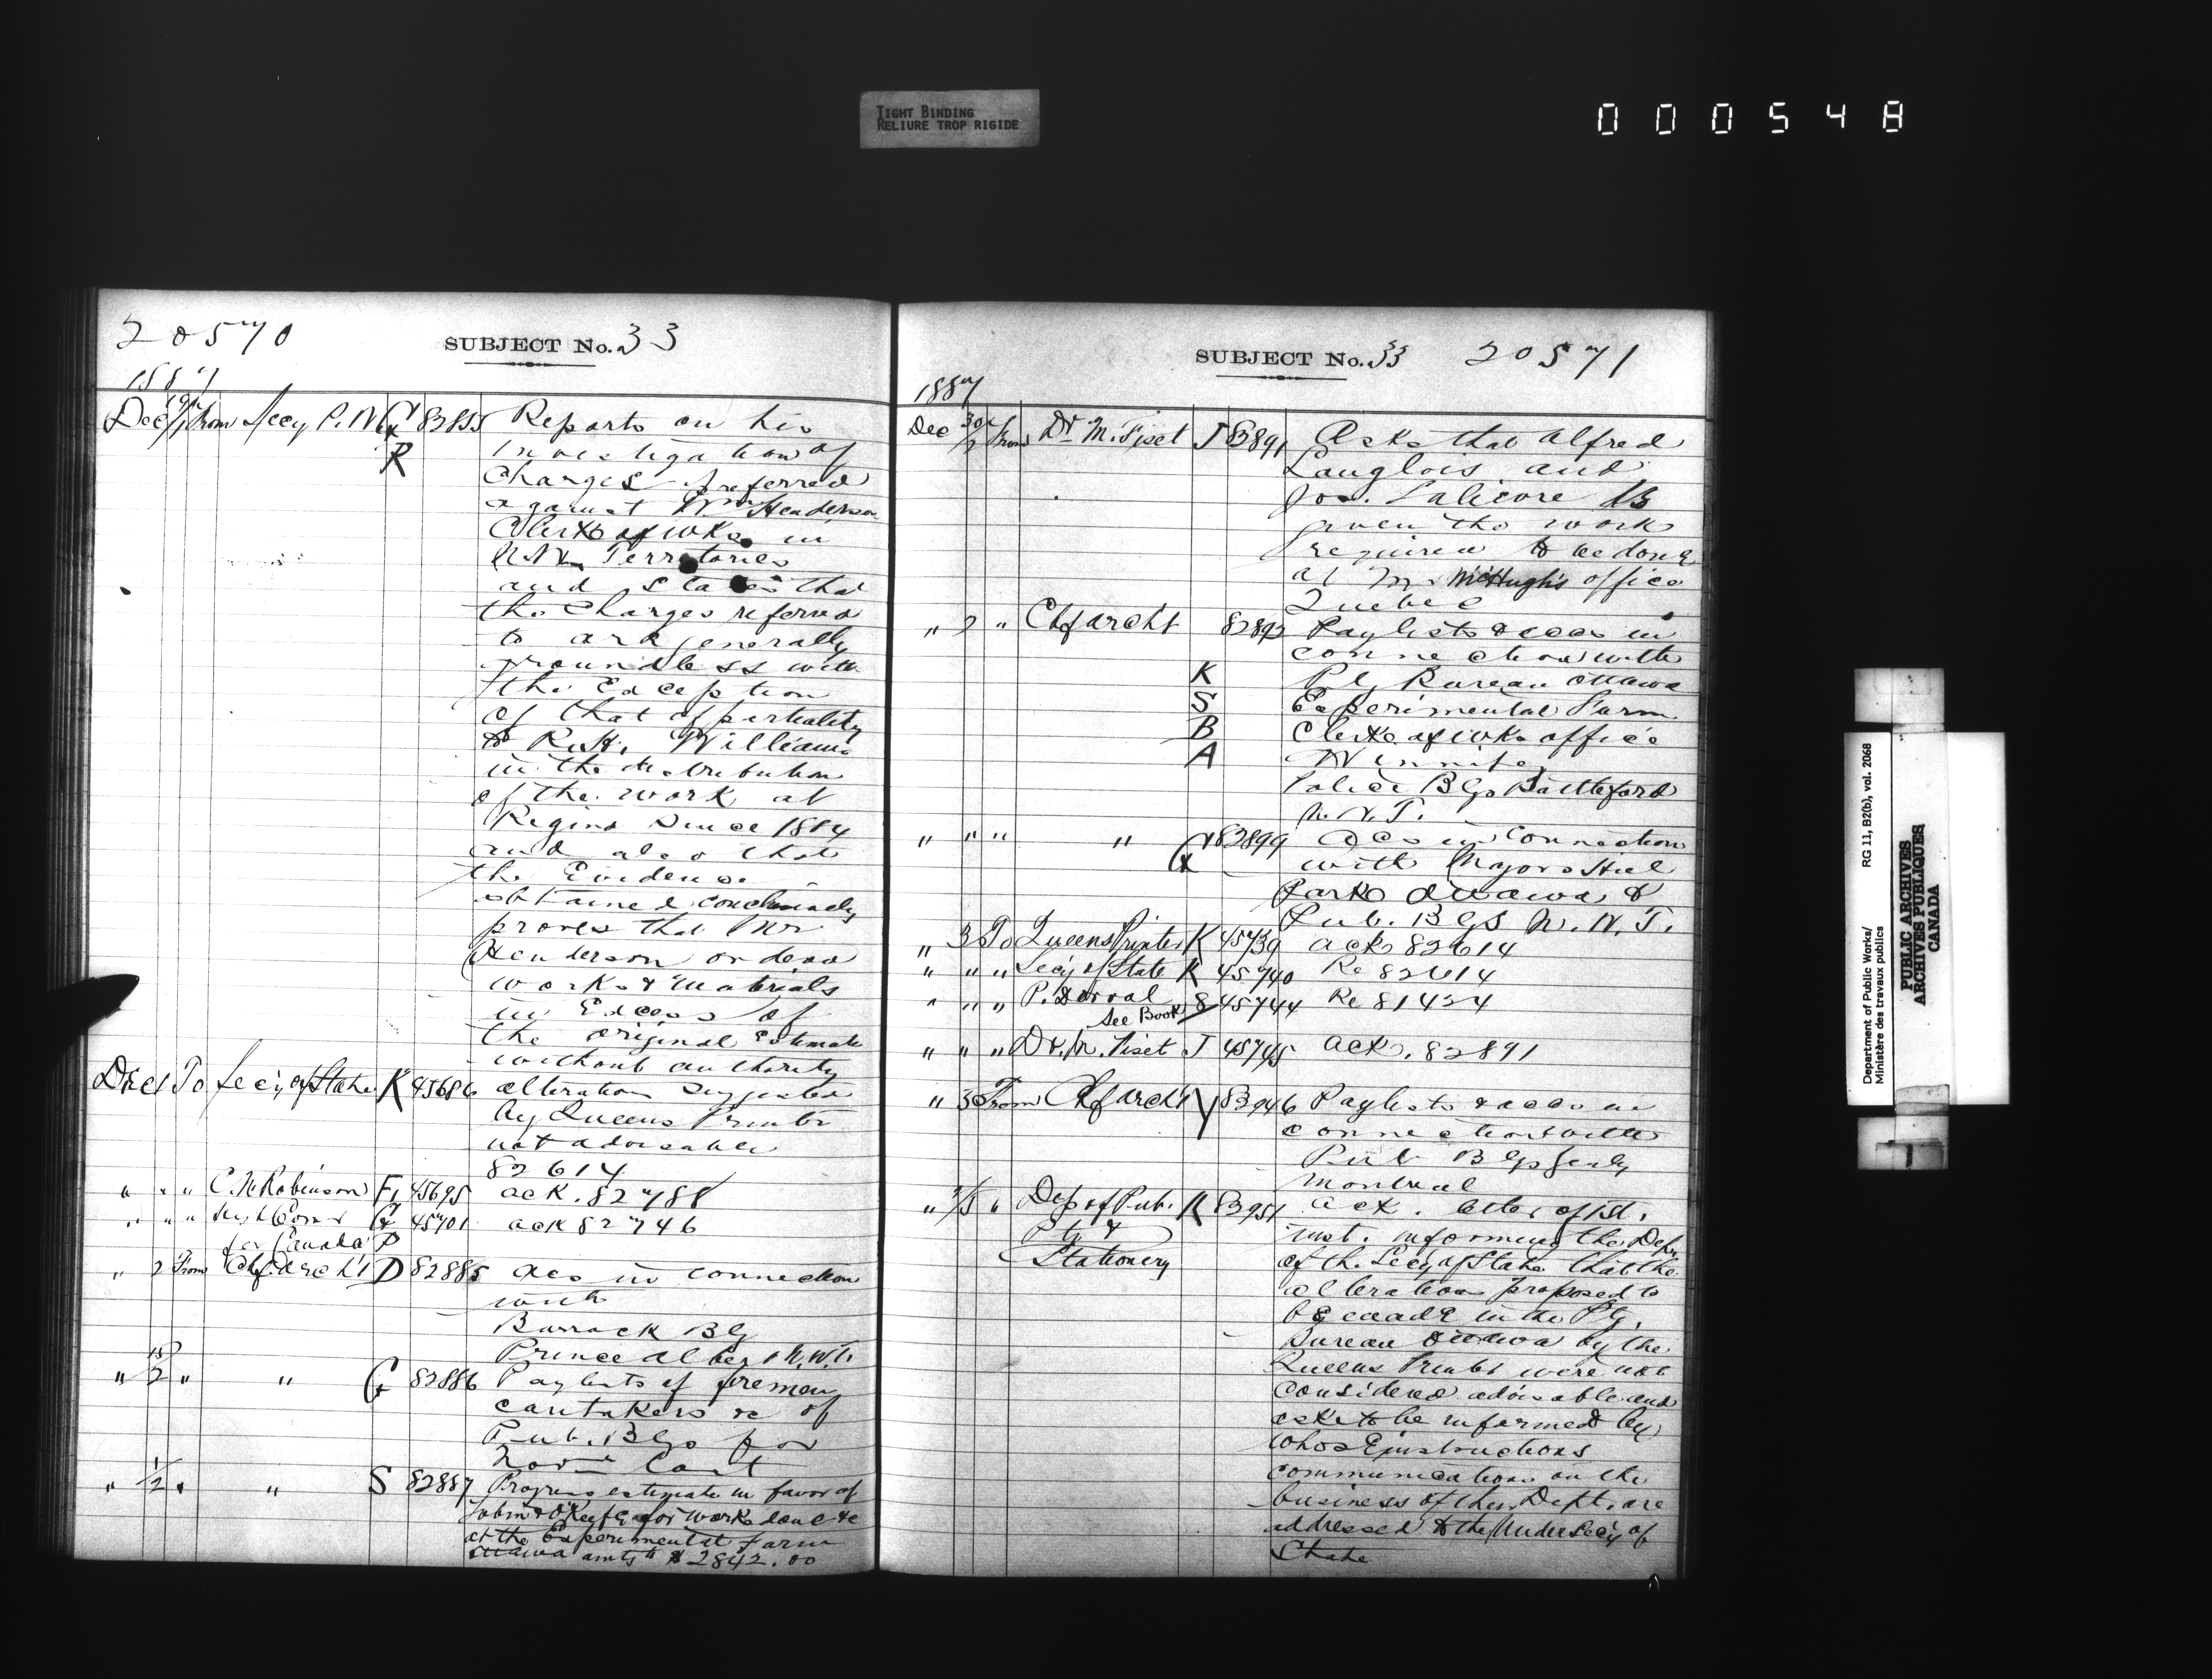 TIGHT BINDING
RELIURE TROP RIGIDE
000548
20570
SUBJECT No. 33
1887
Dec 19/1 From Secy P.W. G 82855 Reports on his
R investigation of
Charges preferred
against Wm Henderson
Clerk of wks in
N.W. Territories
and states that
the Charges referred
to are generally
groundless with
the Exception
of that of partiality
to R.H. Williams
in the distribution
of the work at
Regina Since 1884
and also that
the Evidence
obtained conclusively
proves that Mr
Henderson ordered
works & materials
in Excess of
the original Estimate
without authority
Dec 1 To Secy of State K 45686 alteration suggested
by Queens Printer
not advisable
82614
" " " C. W Robinson F, 45695 ack. 82788
" " " High Comr G 45701 ack 82746
for Canada P
" 2 From Chf. Archt D 82885 acs in connection
with
Barrack Blg
Prince Albert N.W.T.
" 15/2 " " G 82886 Paylists of firemen
caretakers &c of
Pub. Blgs for
Novr Last
" 1/2 " " S 82887 Progress estimate in favor of
Tobin & O'Keefe for works done &c
at the Experimental farm
Ottawa amtg to $2842.00
SUBJECT No. 33 20571
1887
Dec 30/2 From Dr M. Fiset J 82891 Asks that Alfred
Langlois and
Jos. Lalicore be
given the work
required to be done
at Mr McHugh's office
Quebec
" 2 " Chf archt 82892 Paylists & accs in
connection with
K Ptg Bureau Ottawa
S Experimental Farm
B Clerk of wks office
A Winnipeg
Police Blgs Battleford
N.W.T.
" " " " G 82899 acs in connection
with Majors Hill
Park Ottawa &
Pub. Blgs N.W.T.
" 3 To Queens Printer K 45739 ack 82614
" " " Secy of State K 45740 Re 82614
" " " P. Dorval 8 45744 Re 81424
See Book
" " " Dr. M. Fiset J 45745 ack. 82891
" 3 From Chf archt Y 82946 Paylists & accs in
connection with
Pub Blgs
Montreal
" 2/3 " Dep of Pub. K 82951 ack. letter of 1st.
Ptg & inst. informing the Dept.
Stationery of the Secy of State that the
alterations proposed to
be made in the Ptg.
Bureau Ottawa by the
Queens Printer were not
considered advisable and
asks to be informed by
whose instructions
communications on the
business of their Dept. are
addressed to the Under Secy of
State
Department of Public Works/ RG 11, B2(b), vol. 2068
Ministère des travaux publics
PUBLIC ARCHIVES
ARCHIVES PUBLIQUES
CANADA